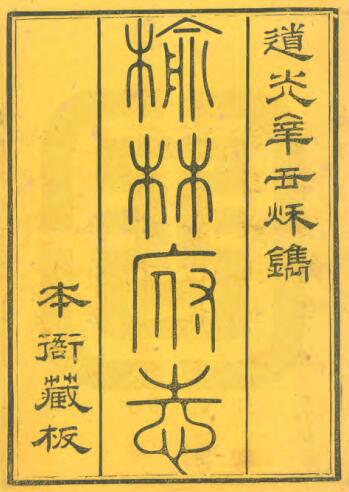 道光辛丑秋鐫
榆林府志
本衙藏板